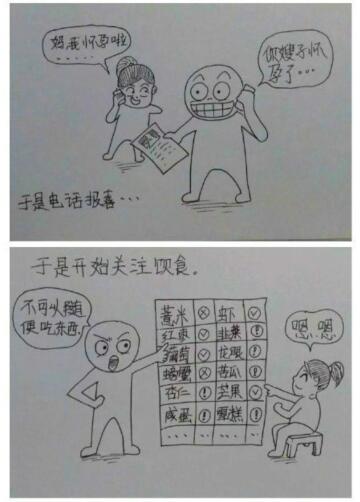 妈,我怀孕啦
......
你嫂子怀
孕了...
于是电话报喜...
于是开始关注饮食。
不可以随
便吃东西
薏米 虾
红枣 韭菜
葡萄 龙眼
螃蟹 苦瓜
杏仁 芒果
咸蛋 蛋糕
... ...
嗯,嗯